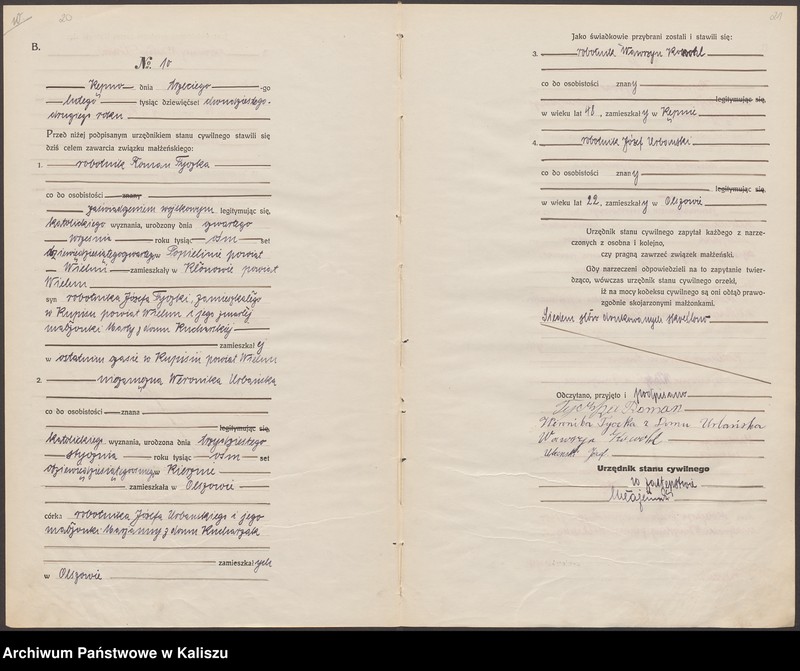 10
20
21
B.
№ 10
Kępno dnia trzeciego -go
lutego tysiąc dziewięćset dwudziestego-
drugiego roku
Przed niżej podpisanym urzędnikiem stanu cywilnego stawili się
dziś celem zawarcia związku małżeńskiego:
1. robotnik Roman Tyczka
co do osobistości znany
zaświadczeniem wojskowym legitymując się,
katolickiego wyznania, urodzony dnia czwartego
września roku tysiąc ośm set
dziewięćdziesiątegoczwartego w Popielinie powiat
Wieluń zamieszkały w Klonowie powiat
Wieluń
syn robotnika Józefa Tyczki, zamieszkałego
w powiat Wieluń i jego zmarłej
małżonki Marty z domu Kucharskiej
zamieszkał ej
w ostatnim czasie w powiat Wieluń
2. niezamężna Weronika Urbańska
co do osobistości znana
legitymując się,
katolickiego wyznania, urodzona dnia trzydziestego
stycznia roku tysiąc ośm set
w
zamieszkała w Olszowie
córka robotnika Józefa Urbańskiego i jego
małżonki Marjanny z domu Kucharzak
zamieszkał ych
w Olszowie
Jako świadkowie przybrani zostali i stawili się:
3. robotnik Wawrzyn
co do osobistości znany
legitymując się,
w wieku lat 48, zamieszkały w Kępnie
4. robotnik Józef Urbański
co do osobistości znany
legitymując się,
w wieku lat 22, zamieszkały w Olszowie
Urzędnik stanu cywilnego zapytał każdego z narze-
czonych z osobna i kolejno,
czy pragną zawrzeć związek małżeński.
Gdy narzeczeni odpowiedzieli na to zapytanie twier-
dząco, wówczas urzędnik stanu cywilnego orzekł,
iż na mocy kodeksu cywilnego są oni odtąd prawo-
zgodnie skojarzonymi małżonkami.
Siedem słów drukowanych skreślono
Odczytano, przyjęto i podpisano
Tyczka Roman
Weronika Tyczka z domu Urbańska
Wawrzyn
Urbański Józef
Urzędnik stanu cywilnego
w zastępstwie
Archiwum Państwowe w Kaliszu